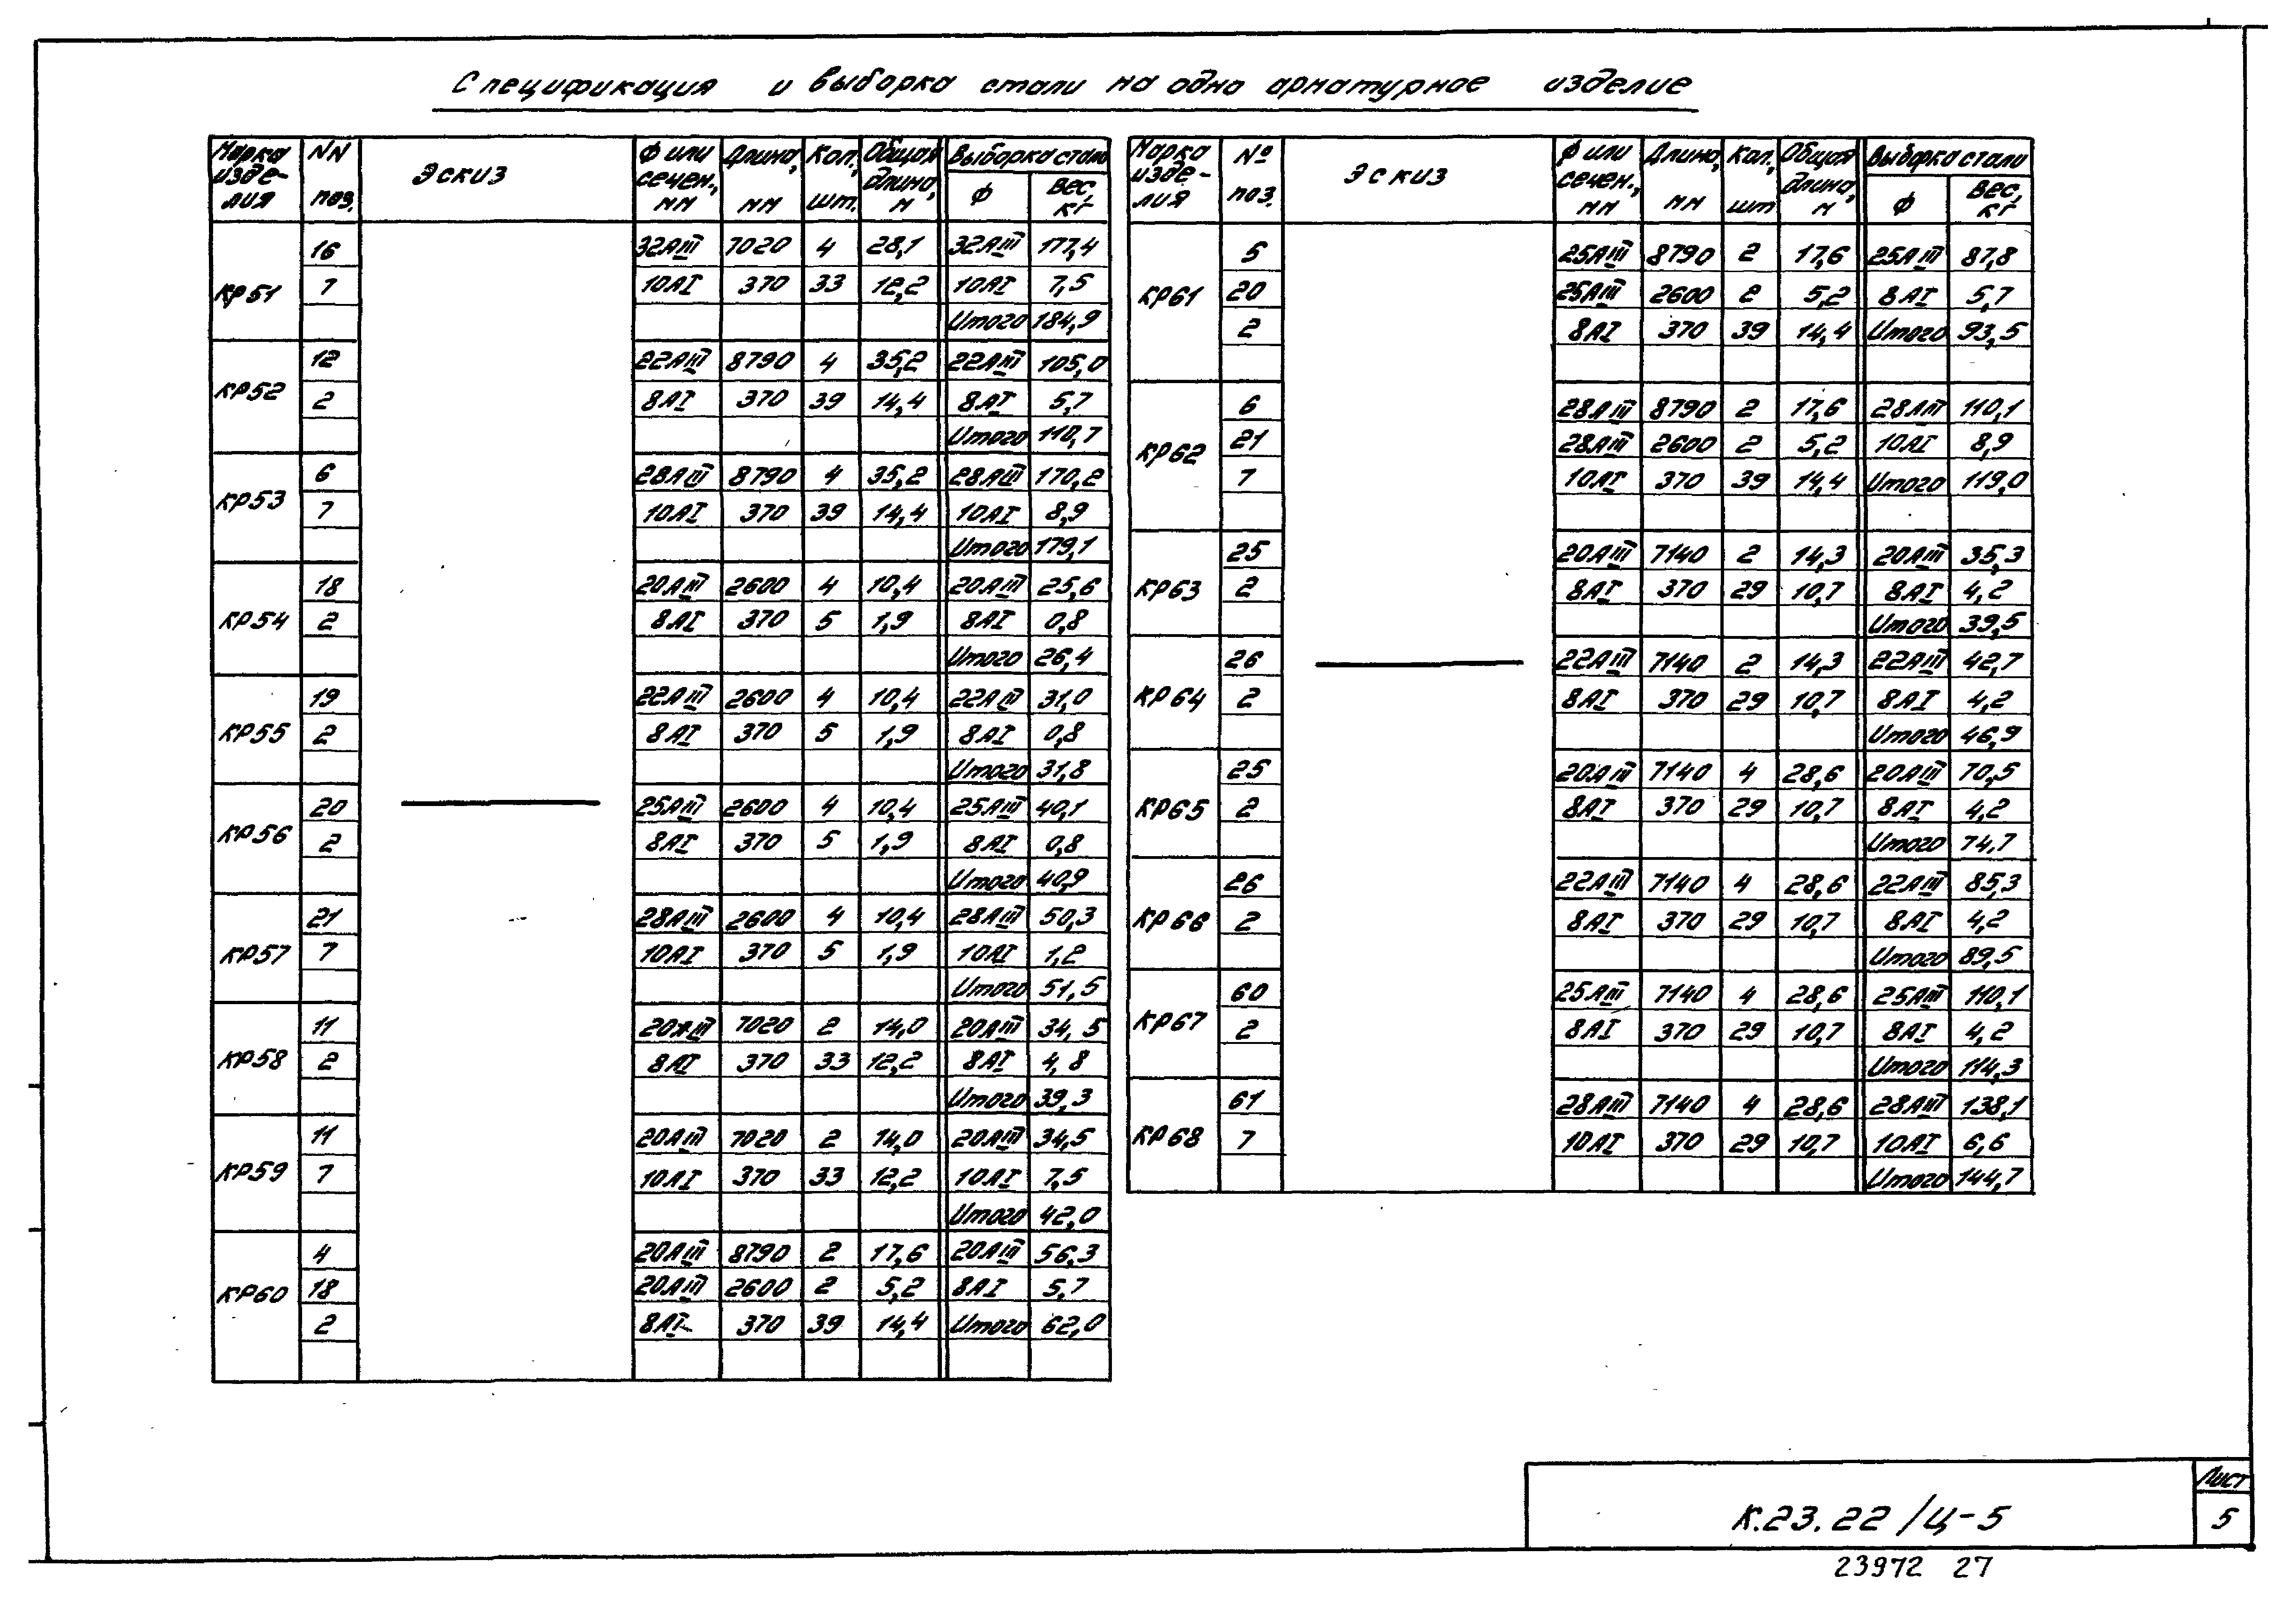 Спецификация и выборка стали на одно арматурное изделие
Марка изде- лия | NN поз. | Эскиз | Ф или сечен., мм | Длина, мм | Кол., шт. | Общая длина, м | Выборка стали
Ф | Вес, кг
КР51
16 32АIII 7020 4 28,1 32АIII 177,4
7 10АI 370 33 12,2 10АI 7,5
Итого 184,9
КР52
12 22АIII 8790 4 35,2 22АIII 105,0
2 8АI 370 39 14,4 8АI 5,7
Итого 110,7
КР53
6 28АIII 8790 4 35,2 28АIII 170,2
7 10АI 370 39 14,4 10АI 8,9
Итого 179,1
КР54
18 20АIII 2600 4 10,4 20АIII 25,6
2 8АI 370 5 1,9 8АI 0,8
Итого 26,4
КР55
19 22АIII 2600 4 10,4 22АIII 31,0
2 8АI 370 5 1,9 8АI 0,8
Итого 31,8
КР56
20 25АIII 2600 4 10,4 25АIII 40,1
2 8АI 370 5 1,9 8АI 0,8
Итого 40,9
КР57
21 28АIII 2600 4 10,4 28АIII 50,3
7 10АI 370 5 1,9 10АI 1,2
Итого 51,5
КР58
11 20АIII 7020 2 14,0 20АIII 34,5
2 8АI 370 33 12,2 8АI 4,8
Итого 39,3
КР59
11 20АIII 7020 2 14,0 20АIII 34,5
7 10АI 370 33 12,2 10АI 7,5
Итого 42,0
КР60
4 20АIII 8790 2 17,6 20АIII 56,3
18 20АIII 2600 2 5,2 8АI 5,7
2 8АI 370 39 14,4 Итого 62,0
Марка изде- лия | № поз. | Эскиз | Ф или сечен., мм | Длина, мм | Кол., шт | Общая длина, м | Выборка стали
Ф | Вес, кг
КР61
5 25АIII 8790 2 17,6 25АIII 87,8
20 25АIII 2600 2 5,2 8АI 5,7
2 8АI 370 39 14,4 Итого 93,5
КР62
6 28АIII 8790 2 17,6 28АIII 110,1
21 28АIII 2600 2 5,2 10АI 8,9
7 10АI 370 39 14,4 Итого 119,0
КР63
25 20АIII 7140 2 14,3 20АIII 35,3
2 8АI 370 29 10,7 8АI 4,2
Итого 39,5
КР64
26 22АIII 7140 2 14,3 22АIII 42,7
2 8АI 370 29 10,7 8АI 4,2
Итого 46,9
КР65
25 20АIII 7140 4 28,6 20АIII 70,5
2 8АI 370 29 10,7 8АI 4,2
Итого 74,7
КР66
26 22АIII 7140 4 28,6 22АIII 85,3
2 8АI 370 29 10,7 8АI 4,2
Итого 89,5
КР67
60 25АIII 7140 4 28,6 25АIII 110,1
2 8АI 370 29 10,7 8АI 4,2
Итого 114,3
КР68
61 28АIII 7140 4 28,6 28АIII 138,1
7 10АI 370 29 10,7 10АI 6,6
Итого 144,7
К.23.22/Ц-5
Лист
5
23972 27